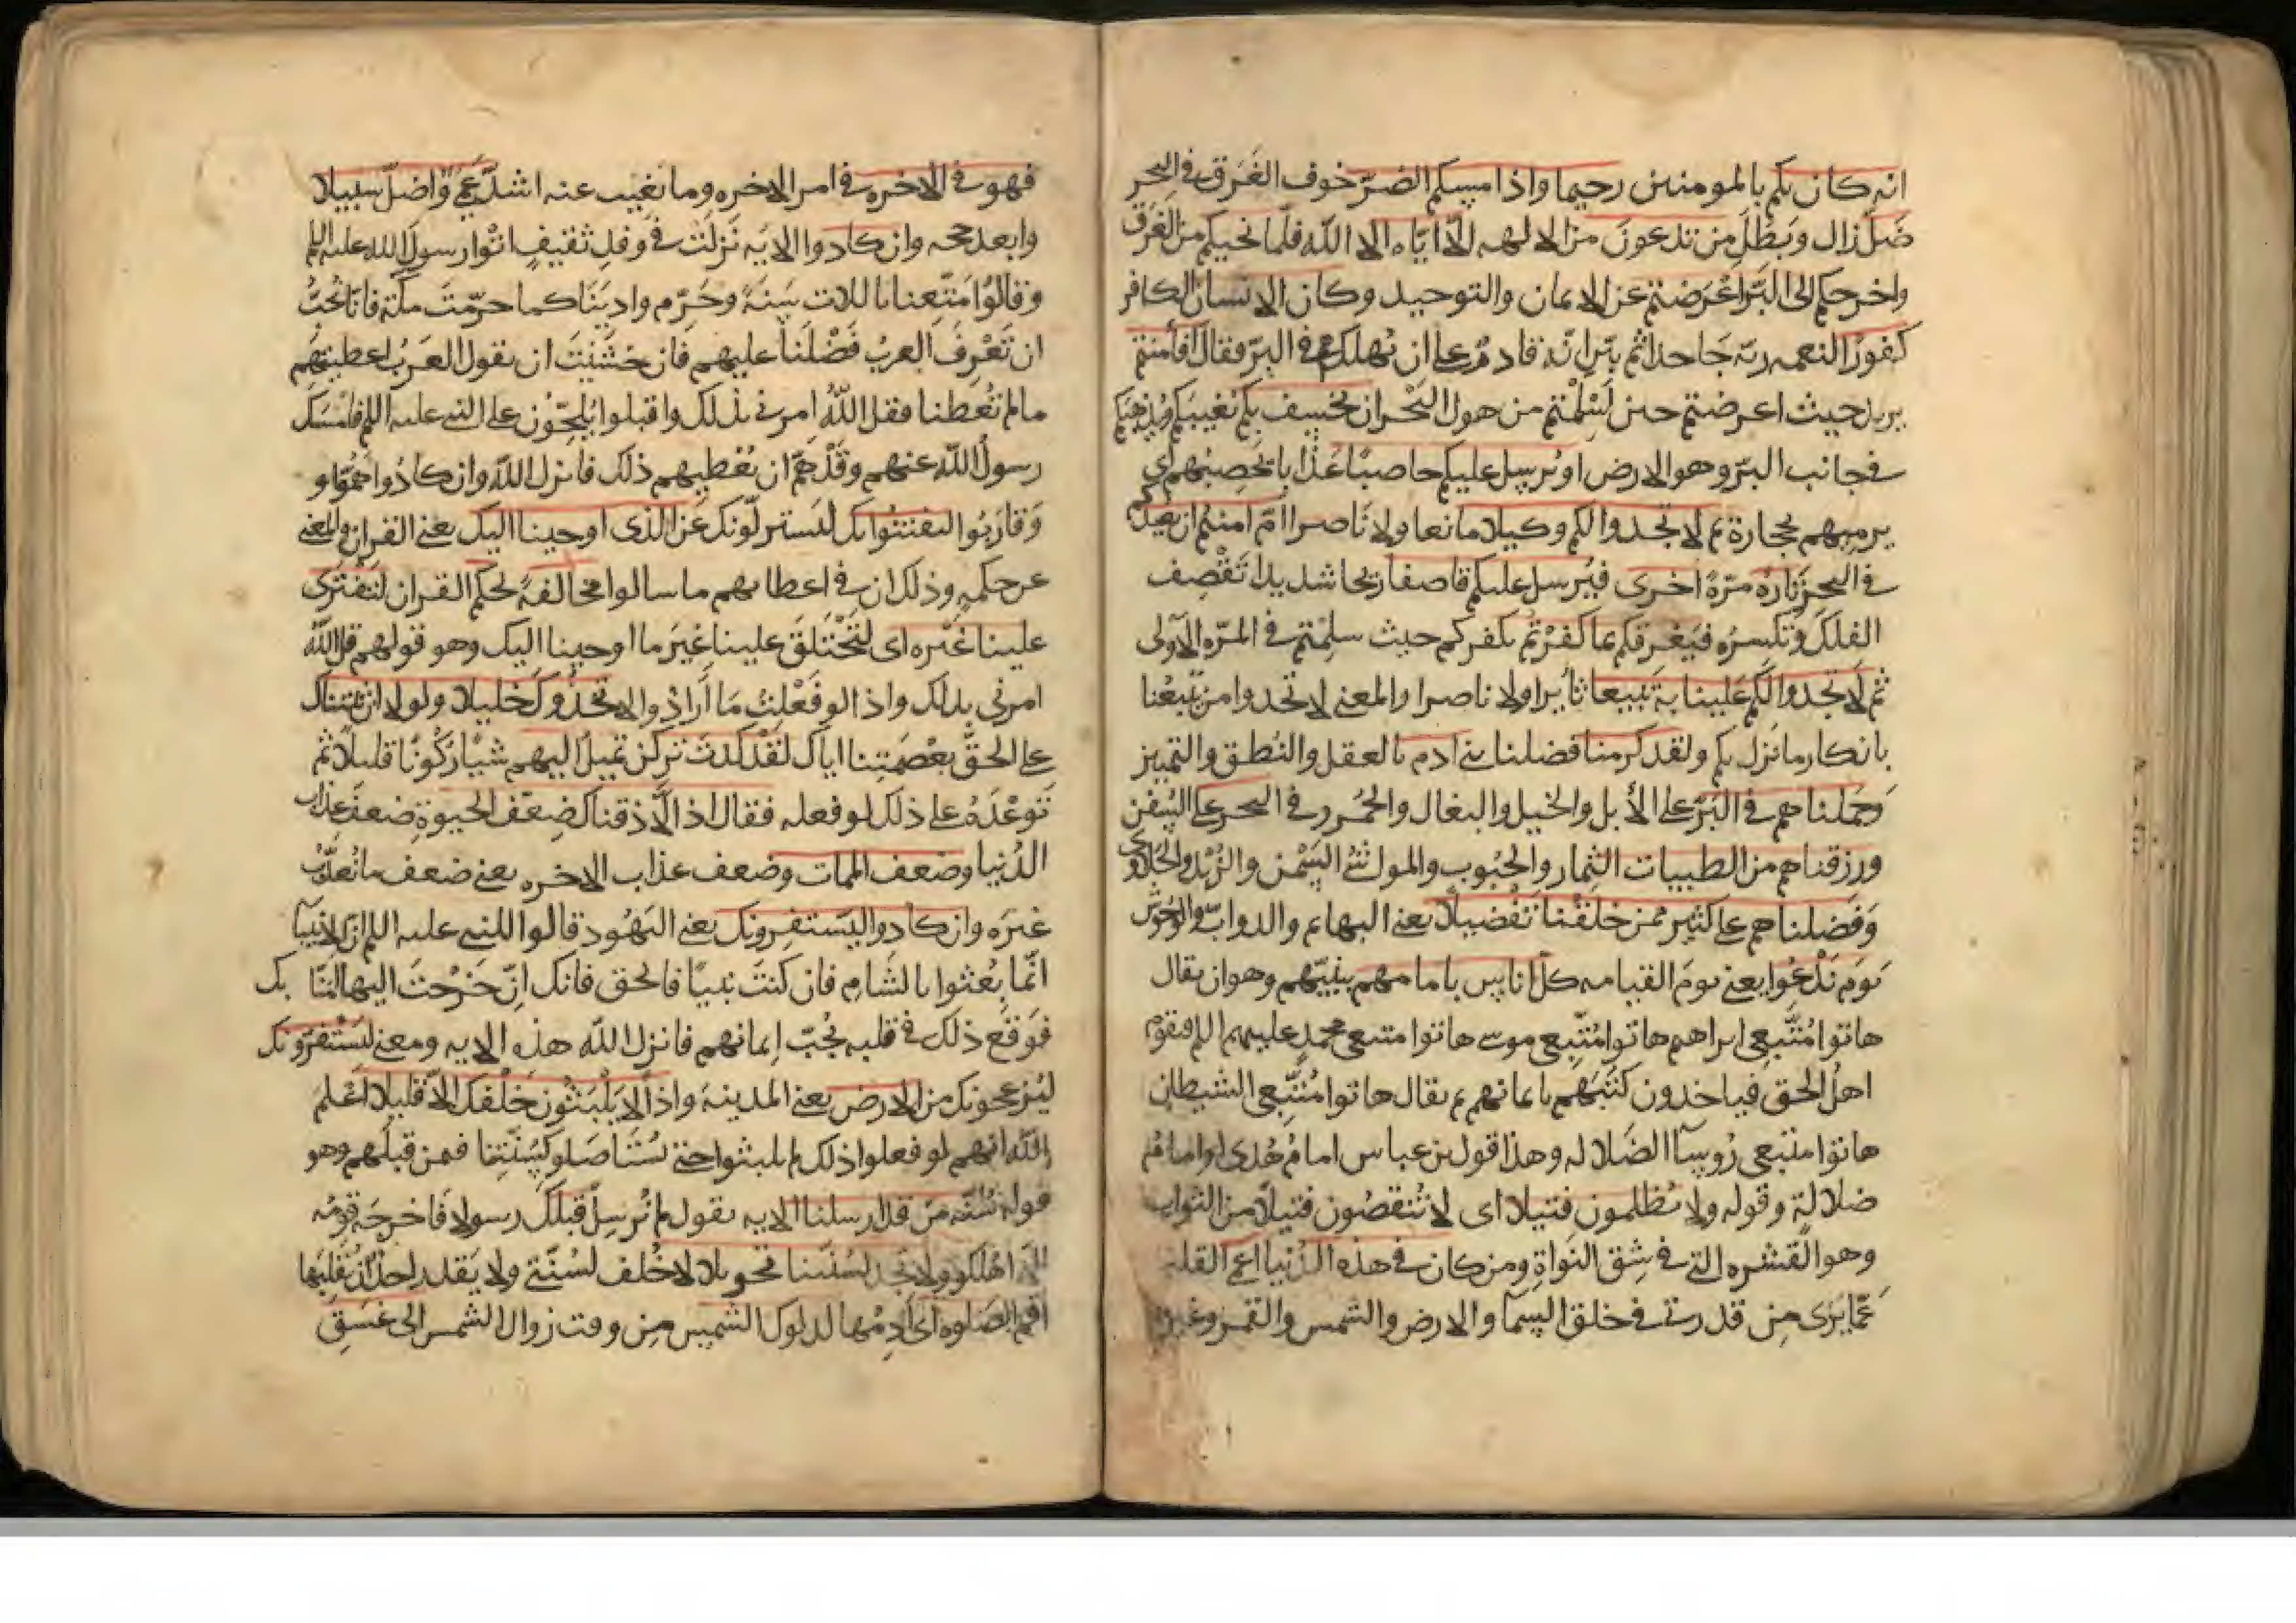 انه كان بكم بالمومنين رحيما واذا مسكم الضرّ خوف الغَرَق في البحر
ضَلّ زال وبَطَلَ من تدعونَ من الالهه الّا ايّاه الا اللّه فلمّا نحيكم من الغَرَق
واخرجكم الى البَرّ اعْرَضتم عن الايمان والتوحيد وكان الانسان الكافر
كفورًا لنعمه ربّه جَاحدا ثم بيّن انّه قادر على ان يُهلكهم في البرّ فقال افأمنتم
يريد حيث اعرضتم حين اَسْلمْتم من هول البَحْر ان نخسِف بكم نُغيّبكم ونُذهبكم
في جانب البرّ وهو الارض او نُرسل عليكم حاصبًا عَذابا يَحصِبُهم اي
يرميهم بحجارة ثم لا تجدوا لكم وكيلا مانعا ولا ناصرا امْ امنتم ان نعيدكم
في البحر تارةً مرّةً اُخرى فنُرسل عليكم قاصفا ريحا شديدا تَقْصِف
الفلكَ وتكسرُه فنُغرقكم بما كفرْتم بكفركم حيث سلِمْتم في المرّه الاولى
ثم لَا تجدوا لكُم علينا بهِ تَبيعا ثأيرا ولا ناصرا والمعنى لا تجدوا من يتْبعُنا
بانكار ما نزل بكم ولقد كرمنا فضلنا بني ادم بالعقل والنُطق والتمييز
وَحَملناهم في البَرّ على الأبل والخيل والبغال والحُمر وفي البحر على السُفن
ورزقناهم من الطيبات الثِمار والحُبوب والمواشي السَمْن والزُبْد والحَلاوى
وَفضلناهم على كثير ممن خلقْنا تَفْضيلًا يعني البهايم والدوابّ والوُحُوش
يَوم نَدْعُوا يعني يومَ القيامه كلّ اناسٍ بامامهم بنبيّهم وهو ان يقال
هاتوا مُتّبعي ابراهيم هاتوا مُتّبعي موسى هاتوا متبعي محمدٍ عليهم السلم فيقوم
اهلُ الحق فياخذون كتبَهم بايمانهم ثم يقال هاتوا مُتّبعي الشيطان
هاتوا متبعي رُوسآ الضَلاله وهذا قول بن عباس امامُ هُدى او امامُ
ضلالةٍ وقوله ولا يُظلمون فتيلا اى لا تُنقصُون فتيلًا من الثواب
وهو القشره التي في شِق النَواةِ ومن كان في هذه الدُنيا اعمى القلب
عَمّا يَرَى مِن قدرتي في خلق السمآ والارض والشمس والقمر وغيرها
فهو في الاخره في امر الاخره وما نَغيب عنه اشدّ عمىً وّاضلّ سبيلا
وابعد حجه وان كادوا الايَه نَزلت في وفدِ ثقيفٍ اتْوا رسولَ الله عليه السلم
وقالُوا مَتّعنا باللات سَنَةً وحَرّم وادِيَنَا كما حرّمتَ مكّة فانّا نُحبّ
ان تَعْرِفَ العربُ فَضْلَنا عليهم فان خَشَيْتَ ان يقول العَرَبُ اعطيتهم
ما لم تُعطنا فقل اللّهُ امرني بذلك واقبلوا يُلحّون على النبي عليه السلم فامْسَك
رسولُ اللّه عنهم وقَدْ همّ ان يُعْطيهم ذلك فانزل اللّه وان كادُوا هَمّوا و
وَقارَبُوا ليفتنُوْنك ليَستزلّونك عَن الذى اوحينا اليك يعني القران والمعنى
عن حكمِهِ وذلك ان في اعطايهم ما سالوا مخالفةً لحكم القران لتَفْتَرى
علينا غَيْره اى لتَخْتَلقَ علينا غيرَ ما اوحينا اليك وهو قولهم قل اللّه
امرني بذلك واذا لو فَعْلتَ مَا اَرادُوا لاتخَذُوكَ خليلا ولولا ان ثبّتناك
على الحقّ بعْصمَتِنا اياك لقَدْ كدتَ تركن تَميلُ اليهم شيْأ رُكونًا قليلًا ثم
تَوعّدَهُ على ذلك لو فعله فقال اذًا لّاذقناك ضِعْف الحيوةِ ضعفَ عذاب
الدُنيا وضعف الممات وضعف عذاب الاخره يعني ضعف ما يُعذّبُ
غيرَه وان كادوا ليَستفِزونك يعني اليَهُود قالوا للنبي عليه السلم ان الانبيآ
انّما بُعثوا بالشَام فان كنتَ نبيًا فالحق فانك ان خَرَجْتَ اليها امنّا بك
فوَقَعَ ذلك في قلبه لحُبّ ايمانهم فانزل اللّه هذه الايه ومعنى ليَسْتفزّونك
ليُزعجونك من الارض يعني المدينة واذًا لّا يَلْبَثُون خَلْفك الّا قليلا اَعْلم
اللّه انهم لو فعلوا ذلك لم يلبثوا حتى يُستَاصَلو كسُنّتِنا فمن قبلَهم وهو
قوله سُنّة مَن قد ارسلنا الايه يقول لم نُرسِلْ قبلك رسولا فاخرجَه قومُه
الّا اُهلكوا ولا تَجد لسُنّتنا تحويلا لا خُلفَ لسُنّتي ولا يَقدر احدٌ ان يُقْلبَها
اقم الصَلوه اى اَدِمْها لدلوك الشمس مِن وقت زوال الشمس الى غسَقِ